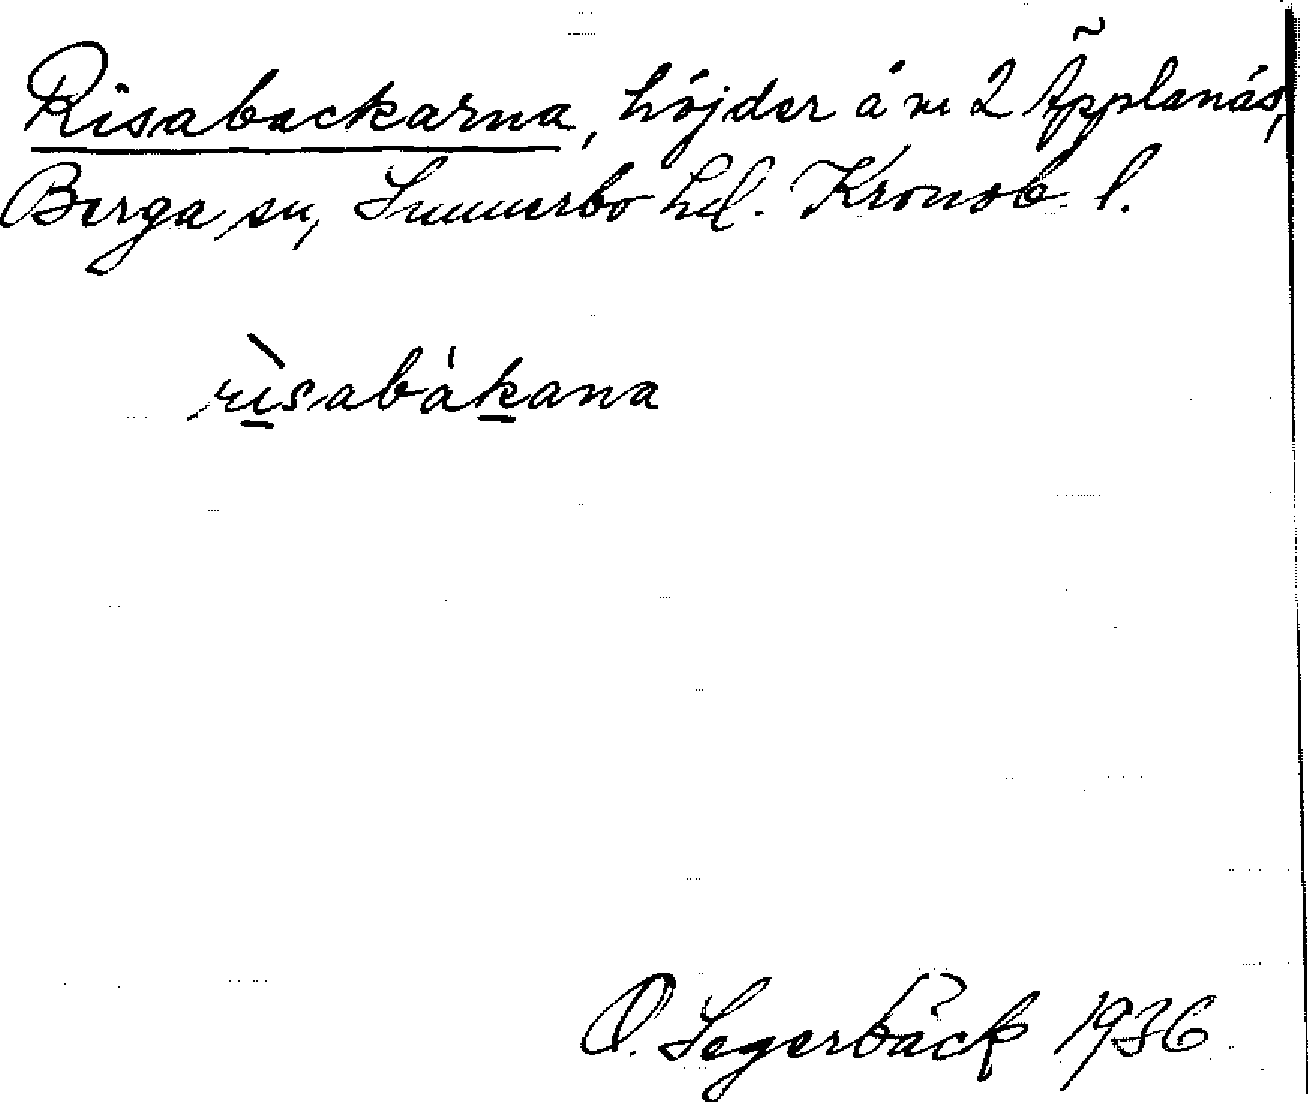 Risabackarna, höjder å m 2 Äpplanäs,
Berga sn, Sunnerbo hd. Kronob. l.
rìsabákana
O. Segerbäck 1936